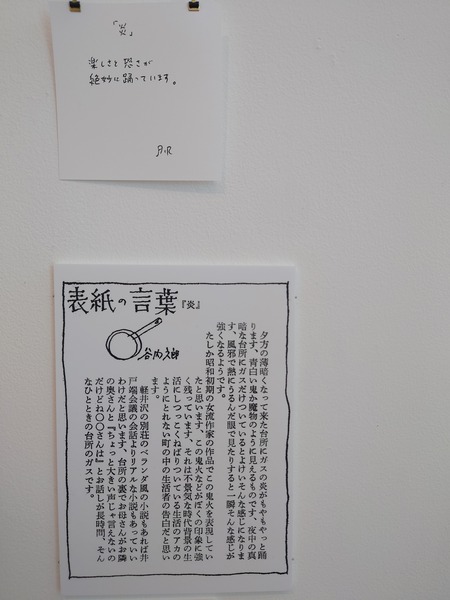 「炎」
楽しさと恐さが
絶妙に踊っています。
表紙の言葉『炎』
谷内六郎
夕方の薄暗くなって来た台所にガスの炎がもやもやっと踊
ります、青白い鬼か魔物のように見えるものです、夜中の真
暗な台所にガスだけついているとよけいそんな感じになりま
す、風邪で熱にうるんだ眼で見たりすると一瞬そんな感じが
強くなるようです。
たしか昭和初期の女流作家の作品でこの鬼火を表現してい
たと思います、この鬼火などがぼくの印象に強
く残っています、それは不景気な時代背景の生
活にしつっこくねばりついている生活のアカの
ようにとれない町の中の生活者の告白だと思い
ます。
軽井沢の別荘のベランダ風の小説もあれば井
戸端会議の会話よりリアルな小説もあっていい
わけだと思います、台所の裏でお母さんがお隣
の奥さんと『ちょっと大きい声じゃ言えないの
だけどね〇〇さんは』とお話しが長時間、そん
なひとときの台所のガスです。